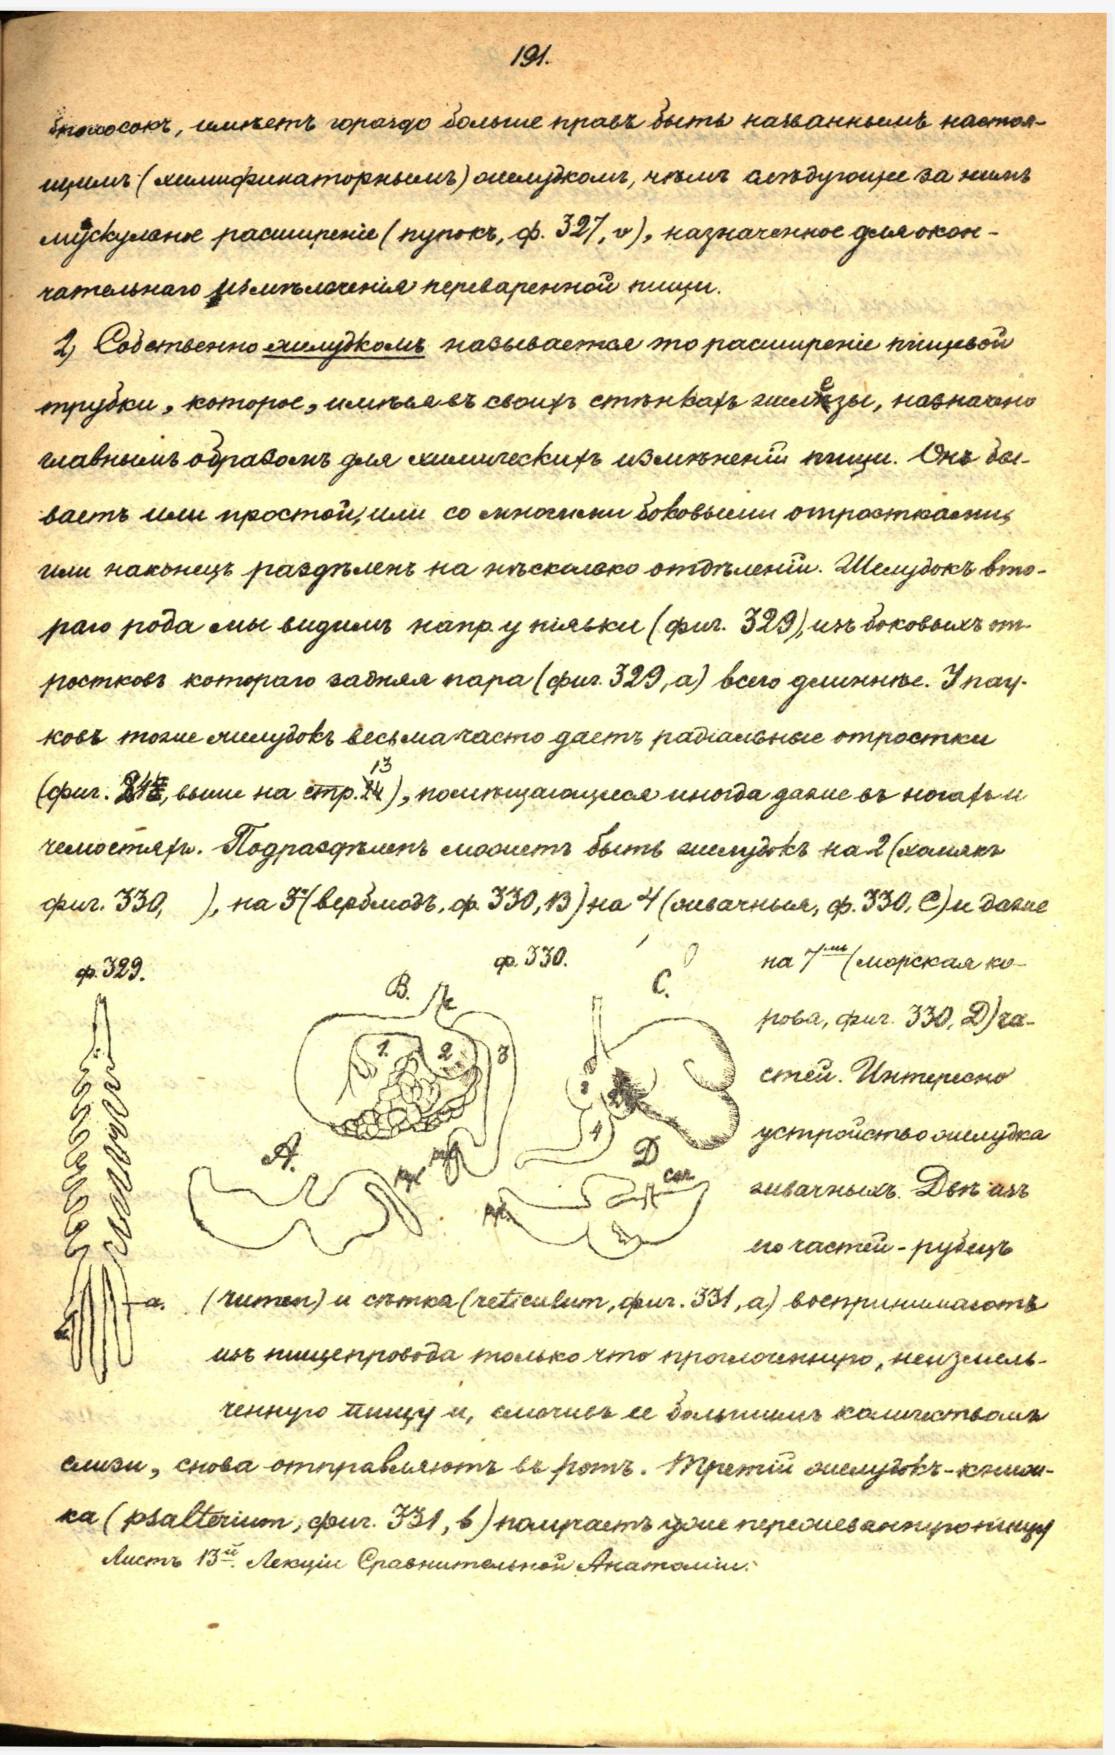 191.
имѣетъ гораздо больше правъ быть названнымъ настоя-
щимъ (химификаторнымъ) желудкомъ, чѣмъ слѣдующее за нимъ
мускульное расширеніе (пупокъ, ф. 327, v), назначенное для окон-
чательнаго измѣльченія переваренной пищи.
2) Собственно желудкомъ называется то расширеніе пищевой
трубки, которое, имѣя въ своихъ стѣнкахъ железы, назначено
главнымъ образомъ для химическихъ измѣненій пищи. Онъ бы-
ваетъ или простой, или со многими боковыми отростками,
или наконецъ раздѣленъ на нѣсколько отдѣленій. Желудокъ вто-
раго рода мы видимъ напр. у піявки (фиг. 329), изъ боковыхъ от-
ростковъ котораго задняя пара (фиг. 329, а) всего длиннѣе. У пау-
ковъ тоже желудокъ весьма часто даетъ радіальные отростки
(фиг. выше на стр. 13), помѣщающіеся иногда даже въ ногахъ и
челюстяхъ. Подраздѣленъ можетъ быть желудокъ на 2 (хомякъ
фиг. 330, ), на 3 (верблюдъ, ф. 330, B) на 4 (жвачныя, ф. 330, C) и даже
ф. 329.
ф. 330.
на 7мь (морская ко-
B.
C.
рова, фиг. 330, D) ча-
1.
2
3
стей. Интересно
4
устройство желудка
A.
D
жвачныхъ. Двѣ изъ
его частей - рубецъ
а.
(rumen) и сѣтка (reticulum, фиг. 331, а) воспринимаютъ
изъ пищепровода только что проглоченную, неизмель-
ченную пищу и, смочивъ ее большимъ количествомъ
слизи, снова отправляютъ въ ротъ. Третій желудокъ - книж-
ка (psalterium, фиг. 331, b) получаетъ уже пережеванную пищу
Листъ 13й. Лекціи Сравнительной Анатоміи.